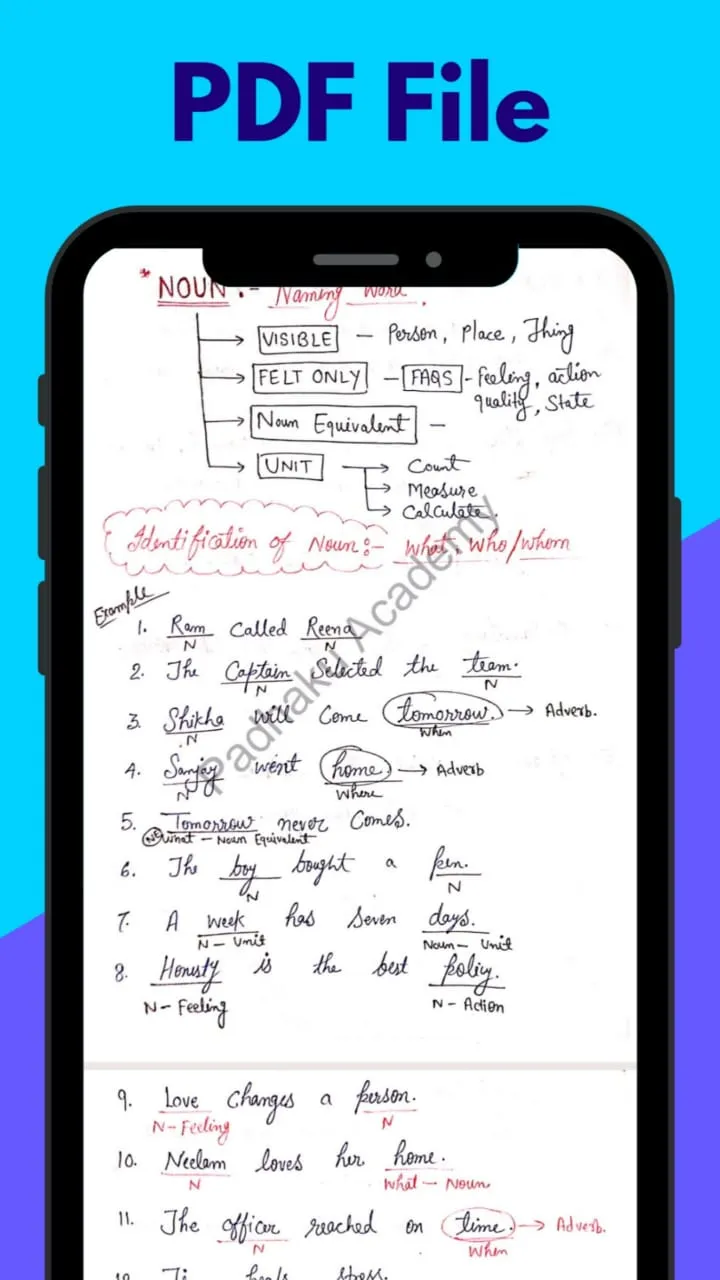 PDF File
* NOUN :- Naming Word.
VISIBLE - Person, Place, Thing
FELT ONLY - FAQS - Feeling, action
quality, State
Noun Equivalent -
UNIT → Count
→ Measure
→ Calculate.
Identification of Noun:- What, Who/Whom
Example
1. Ram called Reena
N N
2. The Captain Selected the team.
N N
3. Shikha will Come tomorrow. → Adverb.
N When
4. Sanjay went home. → Adverb
N Where
5. Tomorrow never Comes.
NE What - Noun Equivalent
6. The boy bought a pen.
N N
7. A week has seven days.
N - Unit Noun - Unit
8. Honesty is the best policy.
N - Feeling N - Action
9. Love changes a person.
N - Feeling N
10. Neelam loves her home.
N What - Noun
11. The officer reached on time. → Adverb.
N When
heals stress.
Padhaku Academy